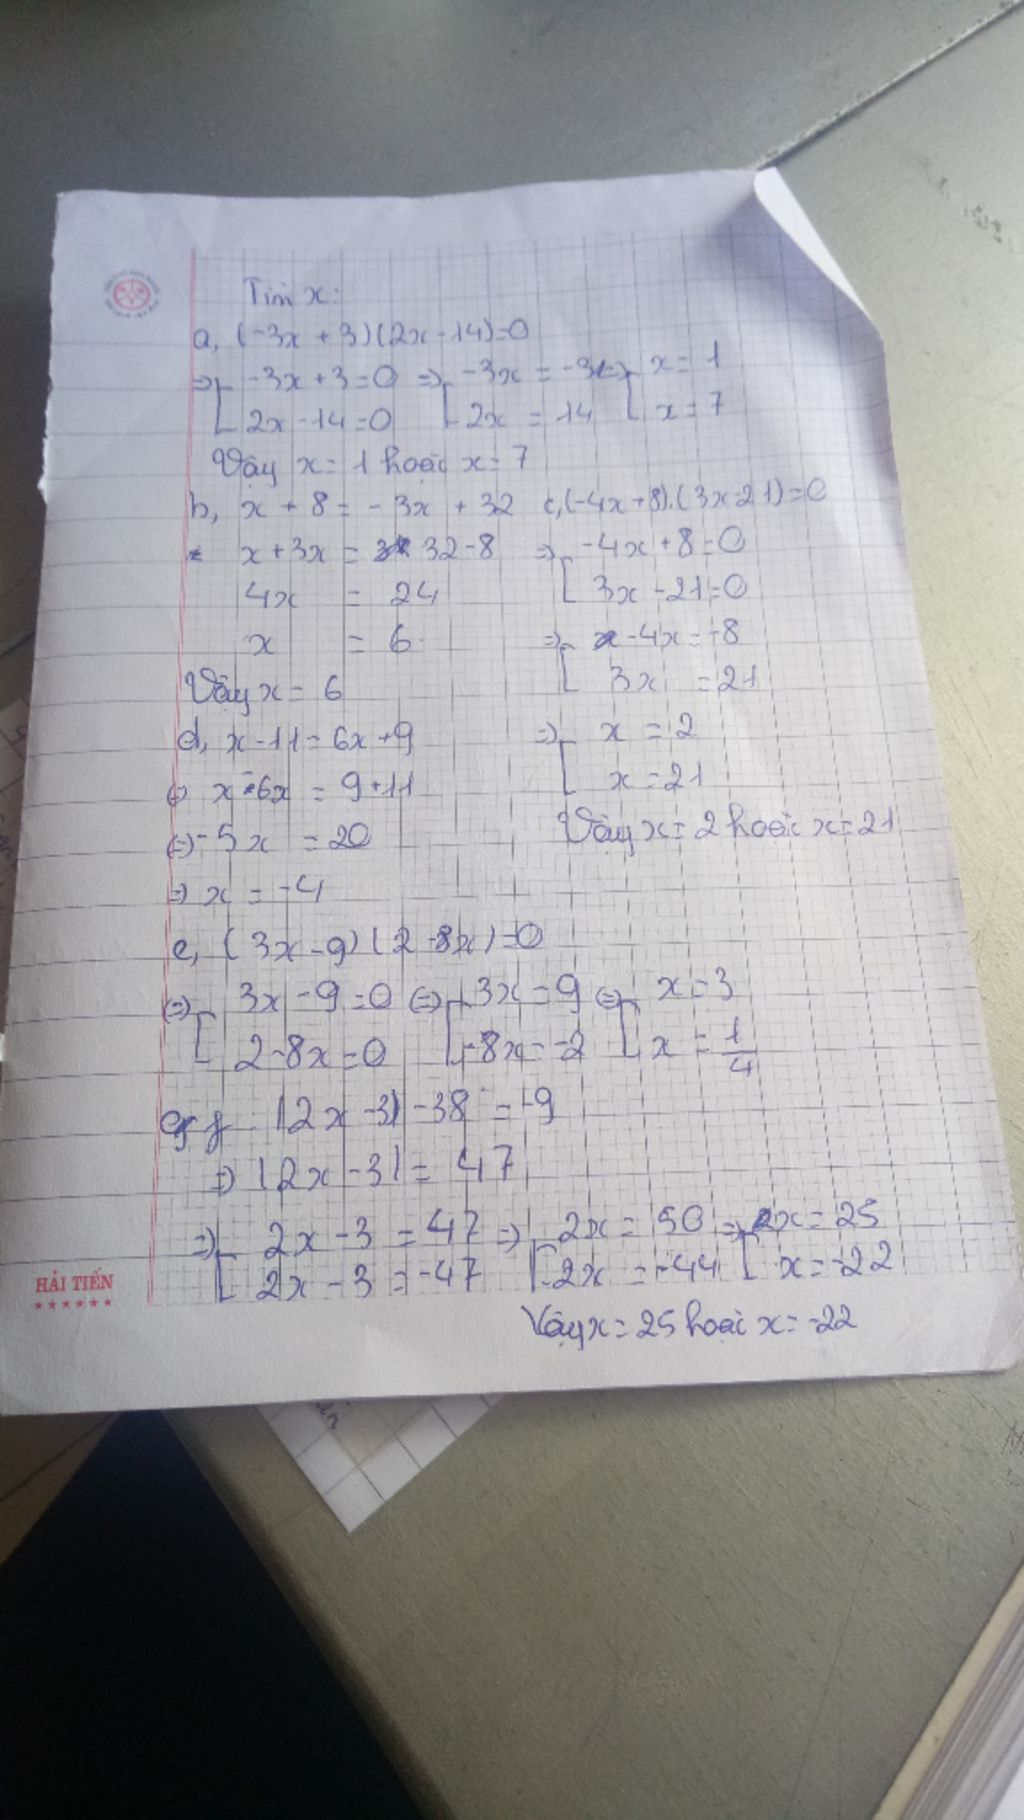 Tìm x:
a, (-3x + 3)(2x - 14)=0
=> [ -3x + 3 = 0 => [ -3x = -3 => [ x = 1
2x - 14 = 0 2x = 14 x = 7
Vậy x = 1 hoặc x = 7
b, x + 8 = - 3x + 32
x + 3x = 32 - 8
4x = 24
x = 6
Vậy x = 6
c, (-4x + 8).(3x - 21) = 0
=> [ -4x + 8 = 0
3x - 21 = 0
=> [ -4x = -8
3x = 21
=> [ x = 2
x = 21
Vậy x = 2 hoặc x = 21
d, x - 11 = 6x + 9
<=> x - 6x = 9 + 11
<=> -5x = 20
=> x = -4
e, (3x - 9)(2 - 8x) = 0
<=> [ 3x - 9 = 0 <=> [ 3x = 9 <=> [ x = 3
2 - 8x = 0 -8x = -2 x = 1/4
f |2x - 3| - 38 = -9
=> |2x - 3| = 47
=> [ 2x - 3 = 47 => [ 2x = 50 => [ x = 25
2x - 3 = -47 2x = -44 x = -22
Vậy x = 25 hoặc x = -22
HẢI TIẾN